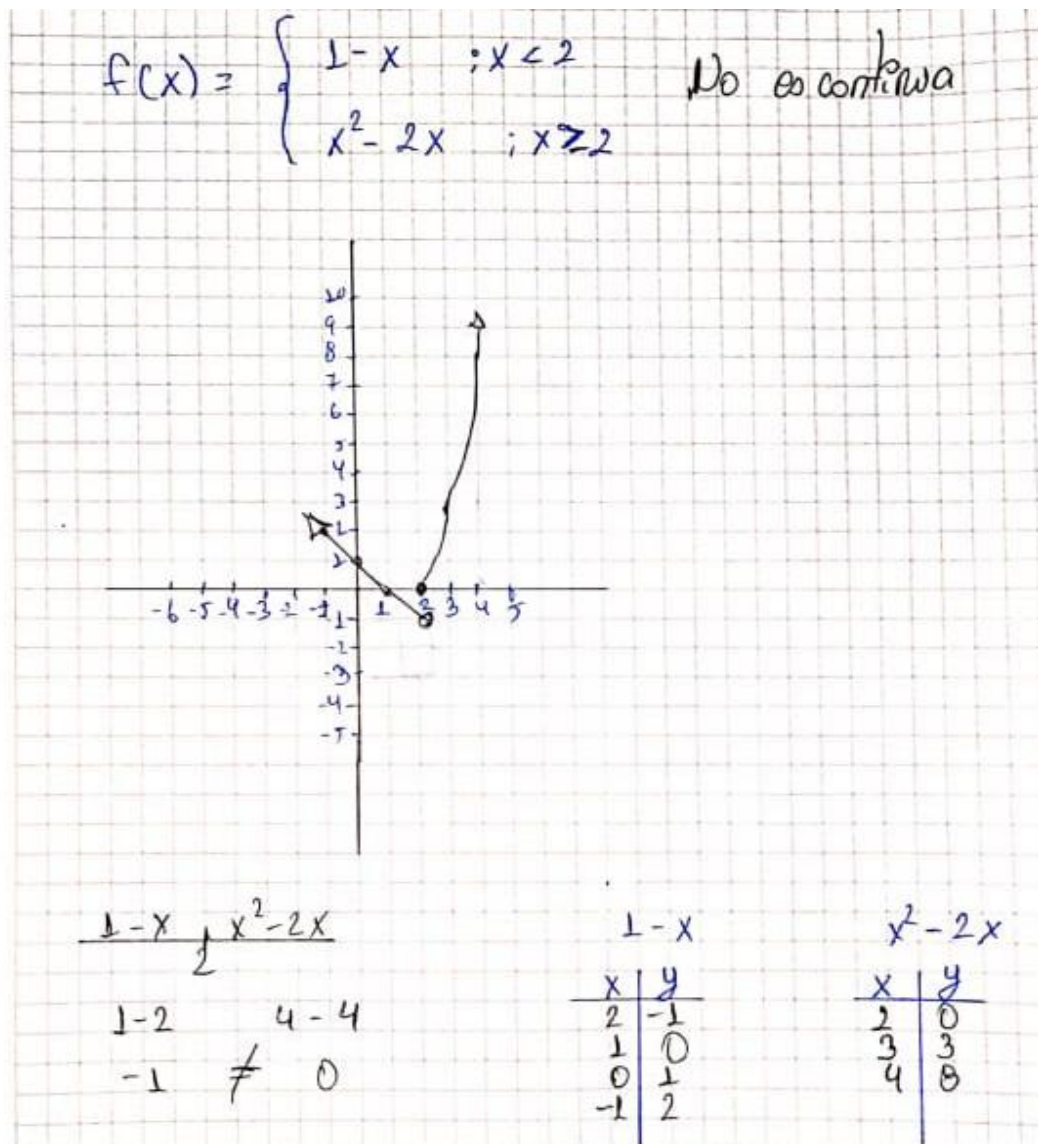 f(x) = { 1 - x ; x < 2
x² - 2x ; x ≥ 2
No es continua
10
9
8
7
6
5
4
3
2
1
-6 -5 -4 -3 -2 -1 1 2 3 4 5
-1
-2
-3
-4
-5
1 - x | x² - 2x
2
1 - 2 4 - 4
-1 ≠ 0
1 - x
x y
2 -1
1 0
0 1
-1 2
x² - 2x
x y
2 0
3 3
4 8